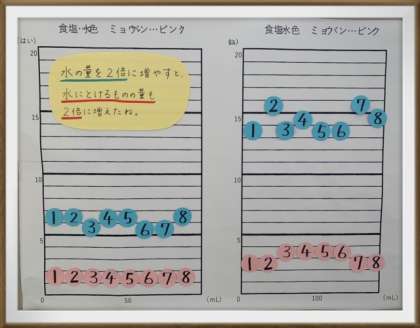 食塩・水色 ミョウバン…ピンク
(はい)
20
水の量を2倍に増やすと、
水にとけるものの量も
2倍に増えたね。
15
10
1 2 3 4 5 6 7 8
5
1 2 3 4 5 6 7 8
0 50 (mL)
食塩水色 ミョウバン…ピンク
20
15
1 2 3 4 5 6 7 8
10
5
1 2 3 4 5 6 7 8
0 100 (mL)